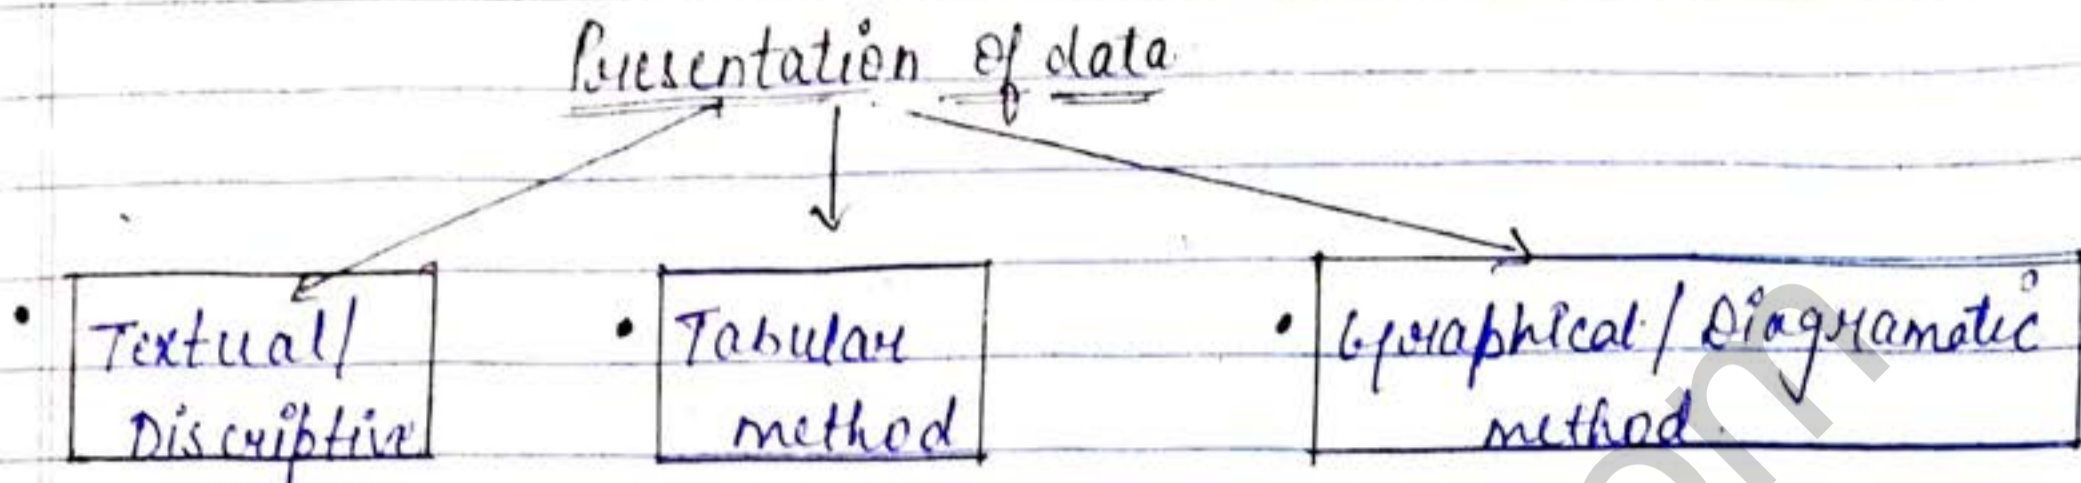 Presentation of data
• Textual/
Discriptive
• Tabular
method
• Graphical / Diagramatic
method
om